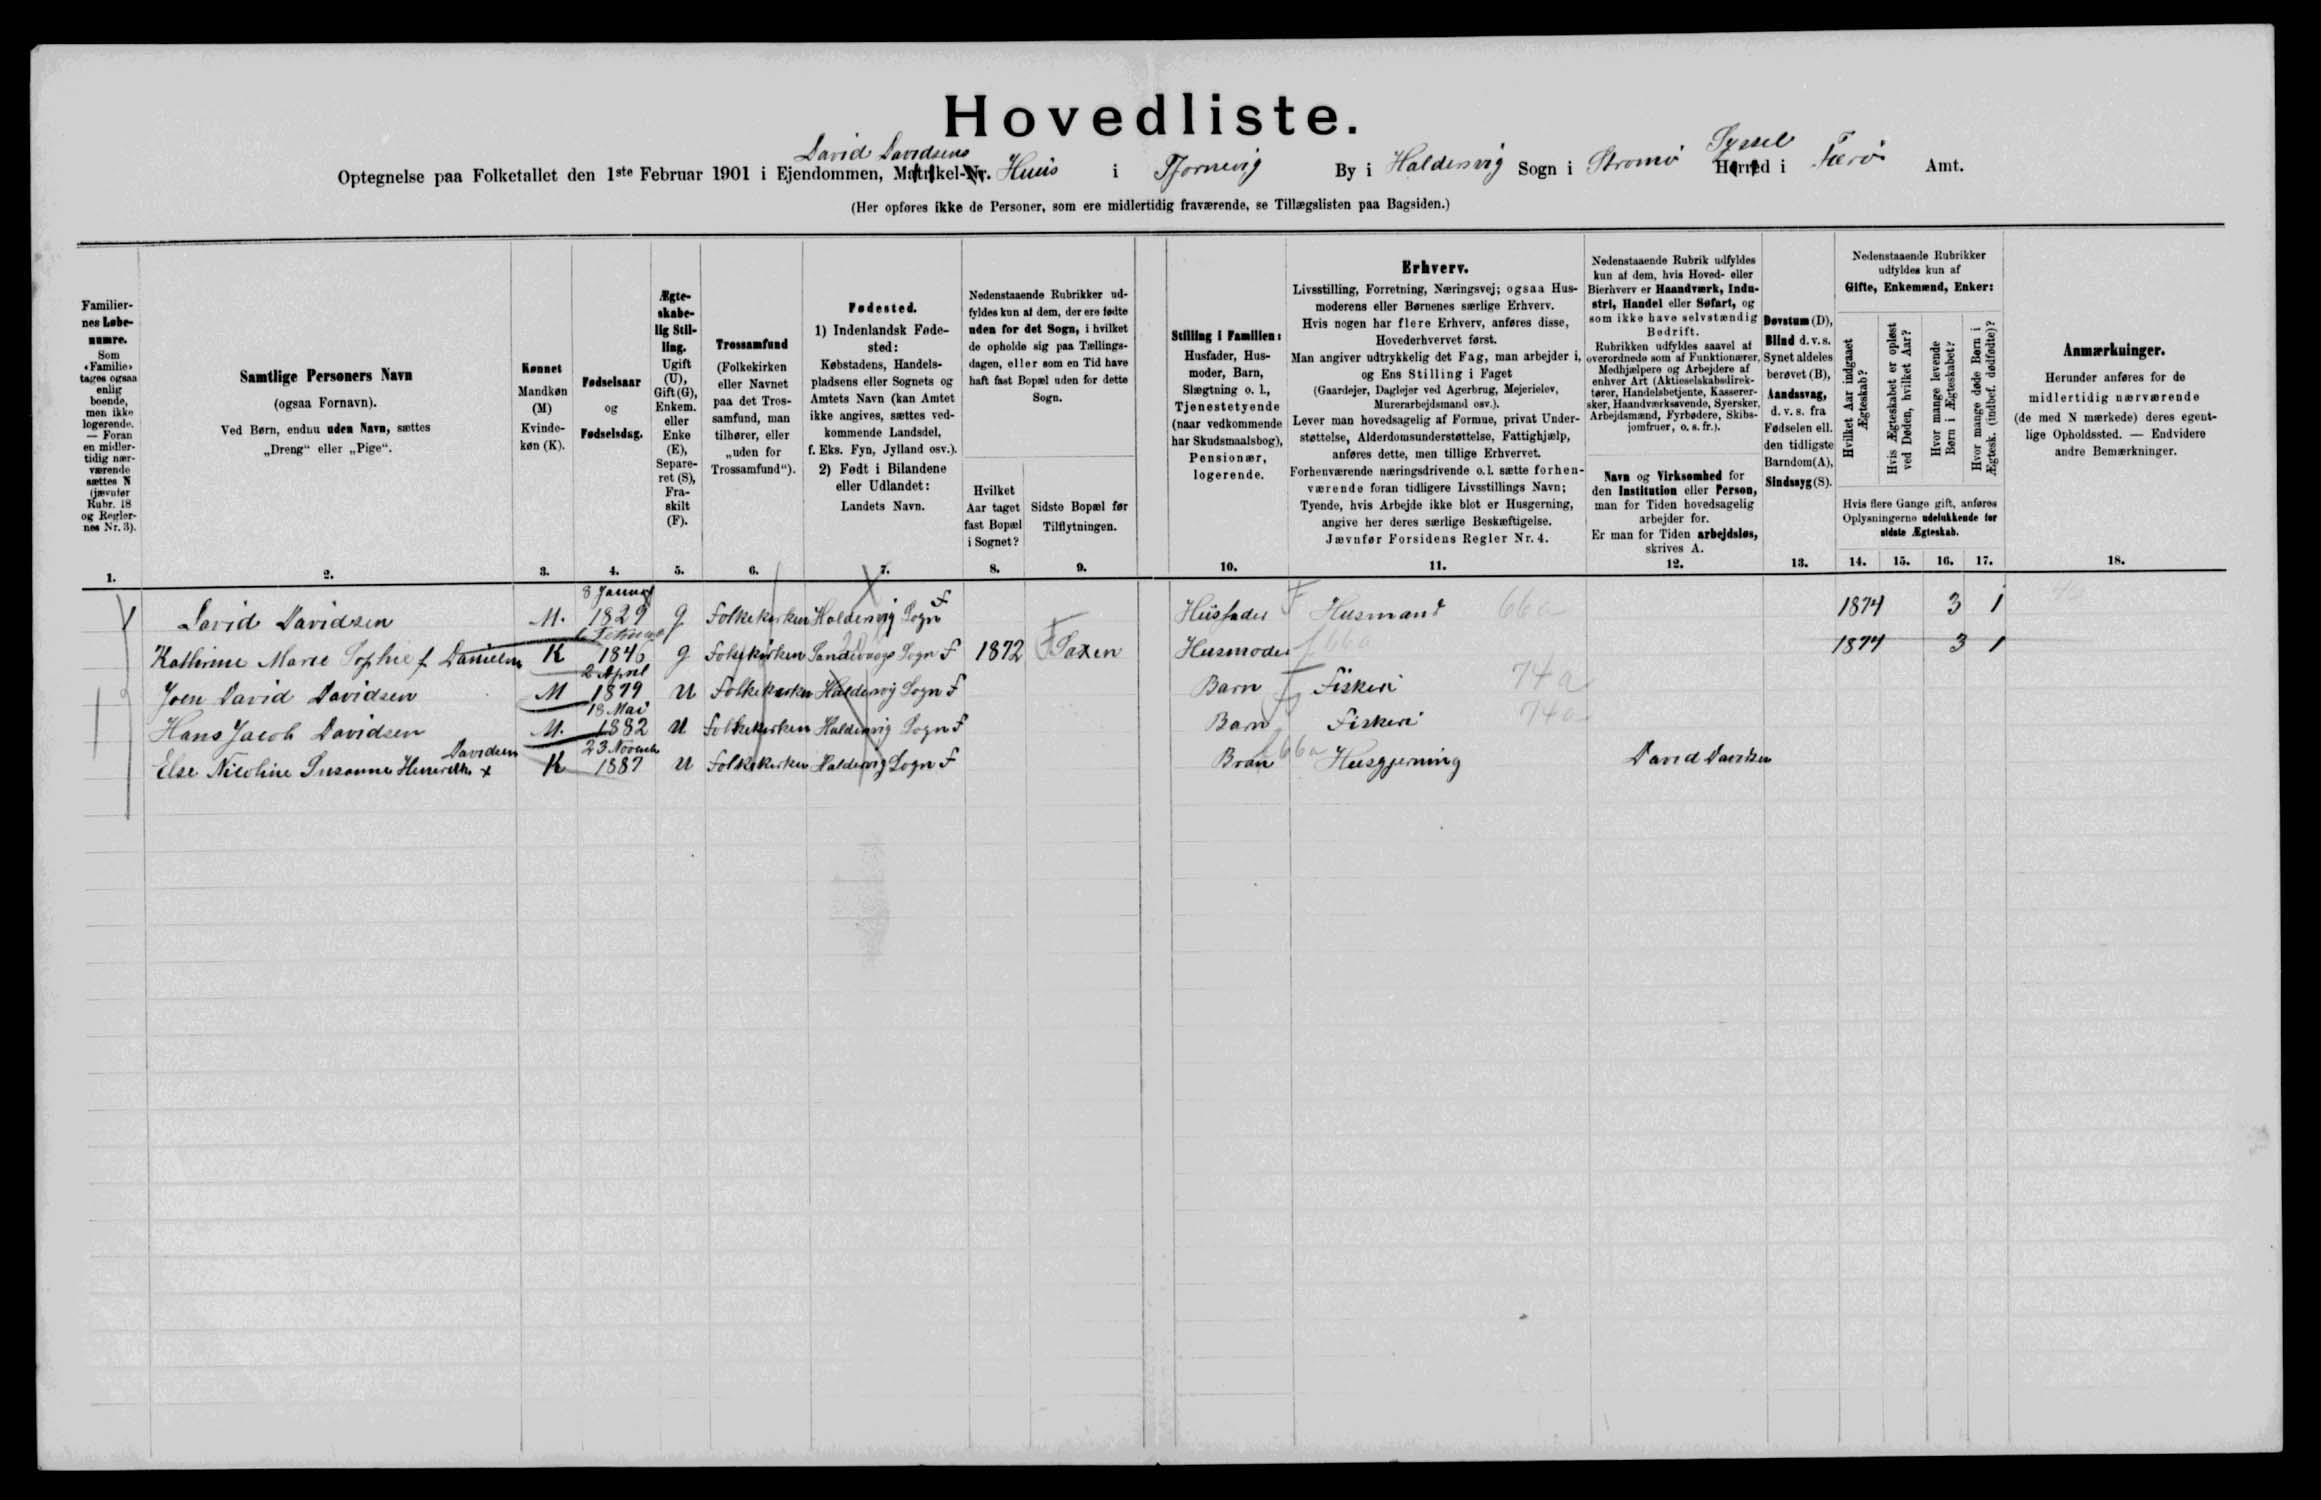 Hovedliste.
David Davidsens Syssel
Optegnelse paa Folketallet den 1ste Februar 1901 i Ejendommen, Matrikel-Nr. Huus i Tjornevig By i Haldersvig Sogn i Stromö Herred i Færö Amt.
(Her opføres ikke de Personer, som ere midlertidig fraværende, se Tillægslisten paa Bagsiden.)
Familiernes Løbenumre.
Som «Familie» tages ogsaa enlig boende, men ikke logerende. — Foran en midlertidig nærværende sættes N (jævnfør Rubr. 18 og Reglernes Nr. 3).
Samtlige Personers Navn
(ogsaa Fornavn).
Ved Børn, endnu uden Navn, sættes
„Dreng“ eller „Pige“.
Kønnet
Mandkøn
(M)
Kvindekøn (K).
Fødselsaar
og
Fødselsdag.
Ægteskabelig Stilling.
Ugift (U), Gift (G), Enkem. eller Enke (E), Separeret (S), Fraskilt (F).
Trossamfund
(Folkekirken eller Navnet paa det Trossamfund, man tilhører, eller „uden for Trossamfund“).
Fødested.
1) Indenlandsk Fødested:
Købstadens, Handelspladsens eller Sognets og Amtets Navn (kan Amtet ikke angives, sættes vedkommende Landsdel, f. Eks. Fyn, Jylland osv.).
2) Født i Bilandene eller Udlandet:
Landets Navn.
Nedenstaaende Rubrikker udfyldes kun af dem, der ere fødte uden for det Sogn, i hvilket de opholde sig paa Tællingsdagen, eller som en Tid have haft fast Bopæl uden for dette Sogn.
Hvilket Aar taget fast Bopæl i Sognet?
Sidste Bopæl før Tilflytningen.
Stilling i Familien:
Husfader, Husmoder, Barn, Slægtning o. l., Tjenestetyende (naar vedkommende har Skudsmaalsbog), Pensionær, logerende.
Erhverv.
Livsstilling, Forretning, Næringsvej; ogsaa Husmoderens eller Børnenes særlige Erhverv.
Hvis nogen har flere Erhverv, anføres disse, Hovederhvervet først.
Man angiver udtrykkelig det Fag, man arbejder i, og Ens Stilling i Faget
(Gaardejer, Daglejer ved Agerbrug, Mejerielev, Murerarbejdsmand osv.).
Lever man hovedsagelig af Formue, privat Understøttelse, Alderdomsunderstøttelse, Fattighjælp, anføres dette, men tillige Erhvervet.
Forhenværende næringsdrivende o. l. sætte forhenværende foran tidligere Livsstillings Navn;
Tyende, hvis Arbejde ikke blot er Husgerning, angive her deres særlige Beskæftigelse.
Jævnfør Forsidens Regler Nr. 4.
Nedenstaaende Rubrik udfyldes kun af dem, hvis Hoved- eller Bierhverv er Haandværk, Industri, Handel eller Søfart, og som ikke have selvstændig Bedrift.
Rubrikken udfyldes saavel af overordnede som af Funktionærer, Medhjælpere og Arbejdere af enhver Art (Aktieselskabsdirektører, Handelsbetjente, Kasserersker, Haandværkssvende, Syersker, Arbejdsmænd, Fyrbødere, Skibsjomfruer, o. s. fr.).
Navn og Virksomhed for den Institution eller Person, man for Tiden hovedsagelig arbejder for.
Er man for Tiden arbejdsløs, skrives A.
Døvstum (D), Blind d. v. s. Synet aldeles berøvet (B), Aandssvag, d. v. s. fra Fødselen ell. den tidligste Barndom (A), Sindssyg (S).
Nedenstaaende Rubrikker udfyldes kun af
Gifte, Enkemænd, Enker:
Hvilket Aar indgaaet Ægteskab?
Hvis Ægteskabet er opløst ved Døden, hvilket Aar?
Hvor mange levende Børn i Ægteskabet?
Hvor mange døde Børn i Ægtesk. (indbef. dødfødte)?
Hvis flere Gange gift, anføres Oplysningerne udelukkende for sidste Ægteskab.
Anmærkninger.
Herunder anføres for de midlertidig nærværende (de med N mærkede) deres egentlige Opholdssted. — Endvidere andre Bemærkninger.
1. 2. 3. 4. 5. 6. 7. 8. 9. 10. 11. 12. 13. 14. 15. 16. 17. 18.
8 Januar
1 David Davidsen M. 1829 g Folkekirken Haldersvig Sogn F Husfader F Husmand 66a 1874 3 1
Februar
Kathrine Marie Sophie f. Danielsen K 1846 g Folkekirken Sandevaags Sogn F 1872 F Saxen Husmoder f 66a 1874 3 1
2 April
Joen David Davidsen M 1879 U Folkekirken Haldersvig Sogn F Barn F Fiskeri 74a
18 Mai
Hans Jacob Davidsen M. 1882 U Folkekirken Haldersvig Sogn F Barn Fiskeri 74a
Davidsen 23 Novemb
Else Nicoline Susanne Henriette x K 1887 U Folkekirken Haldersvig Sogn F Bran f 66a Husgjerning David Davidsen